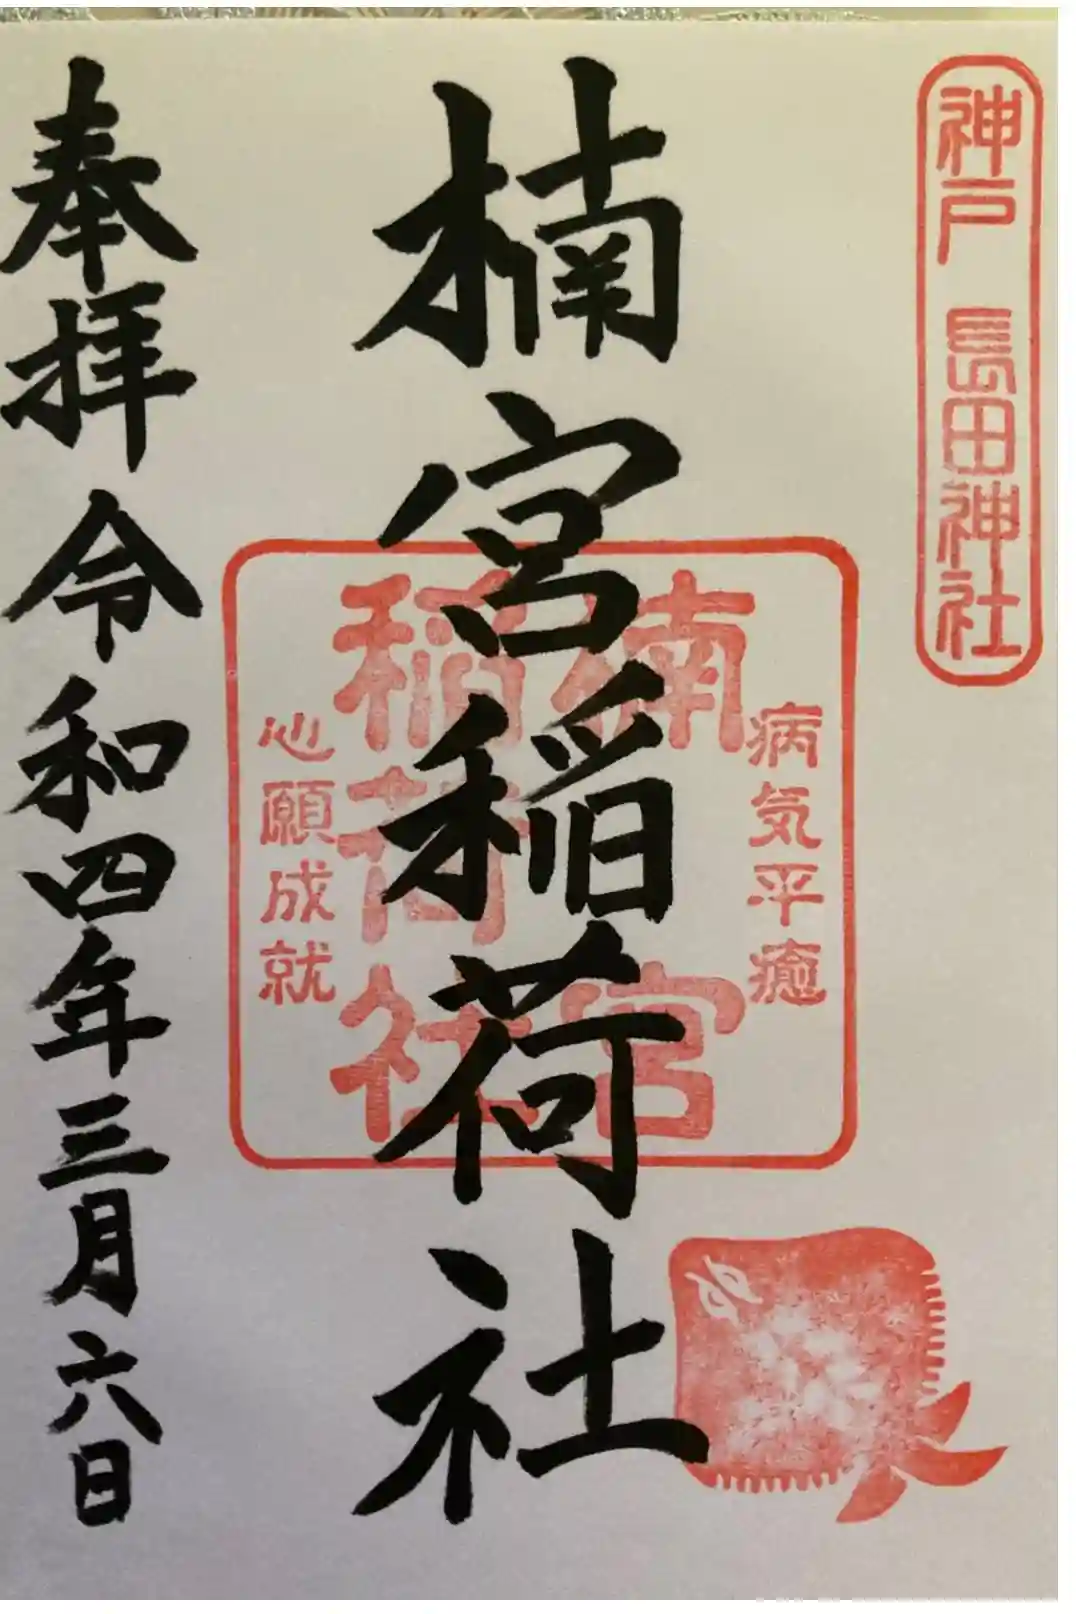 神戸 長田神社
病気平癒
楠宮
稲荷社
心願成就
楠宮稲荷社
奉拝 令和四年三月六日